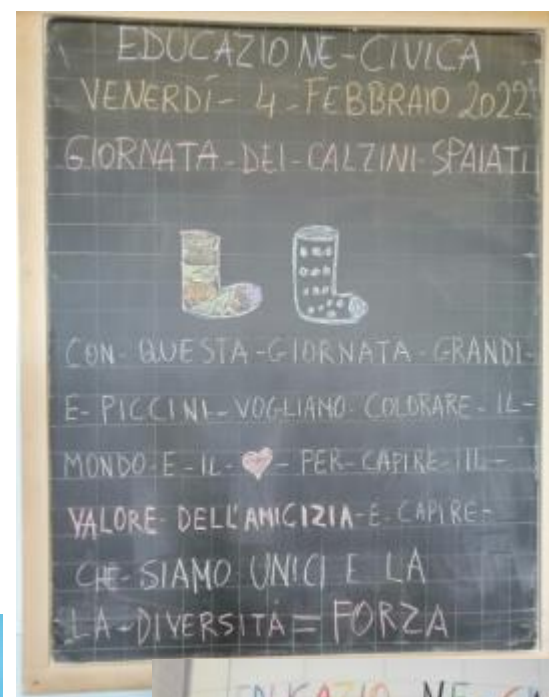 EDUCAZIONE-CIVICA
VENERDÍ-4-FEBBRAIO 2022
GIORNATA-DEI-CALZINI-SPAIATI
CON-QUESTA-GIORNATA-GRANDI-
E-PICCINI-VOGLIAMO-COLORARE-IL-
MONDO-E-IL-♥-PER-CAPIRE-IIL-
VALORE-DELL'AMICIZIA-E-CAPIRE-
CHE-SIAMO UNICI E LA
LA-DIVERSITÁ=FORZA